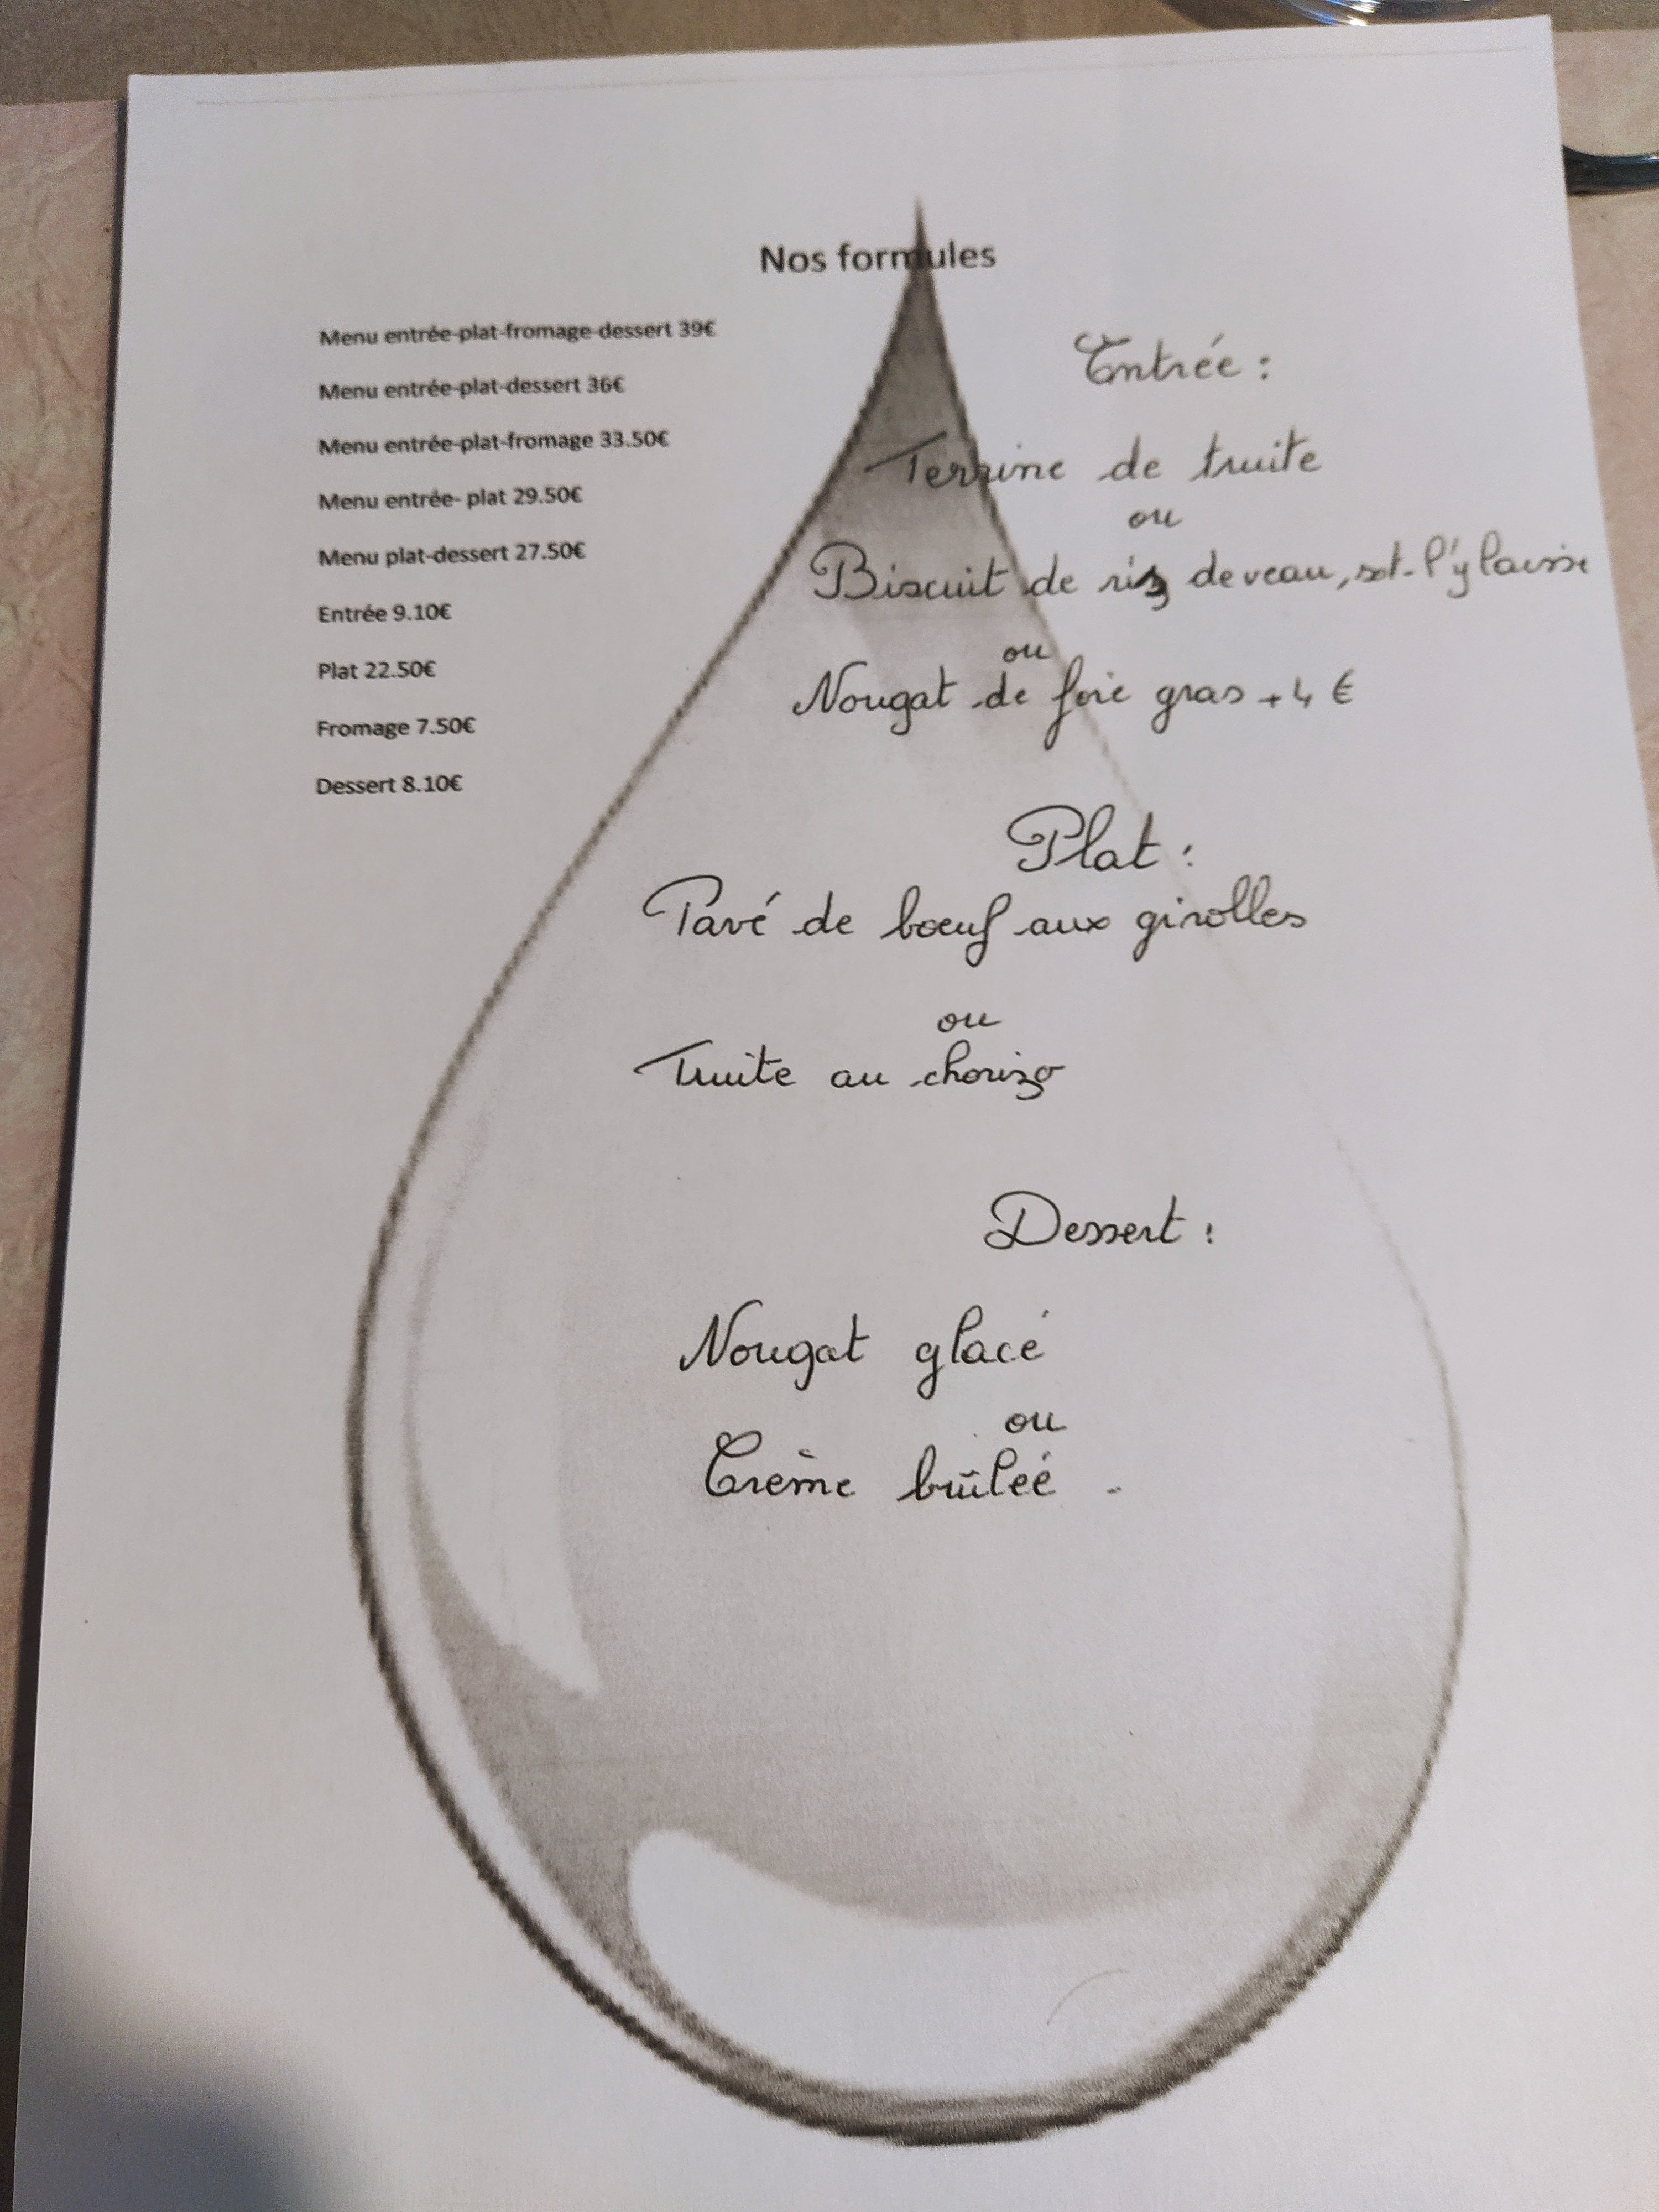 Nos formules
Menu entrée-plat-fromage-dessert 39€
Menu entrée-plat-dessert 36€
Menu entrée-plat-fromage 33.50€
Menu entrée- plat 29.50€
Menu plat-dessert 27.50€
Entrée 9.10€
Plat 22.50€
Fromage 7.50€
Dessert 8.10€
Entrée :
Terrine de truite
ou
Biscuit de riz de veau, sot-l'y laisse
ou
Nougat de foie gras +4 €
Plat :
Pavé de bœuf aux girolles
ou
Truite au chorizo
Dessert :
Nougat glacé
ou
Crème brûlée